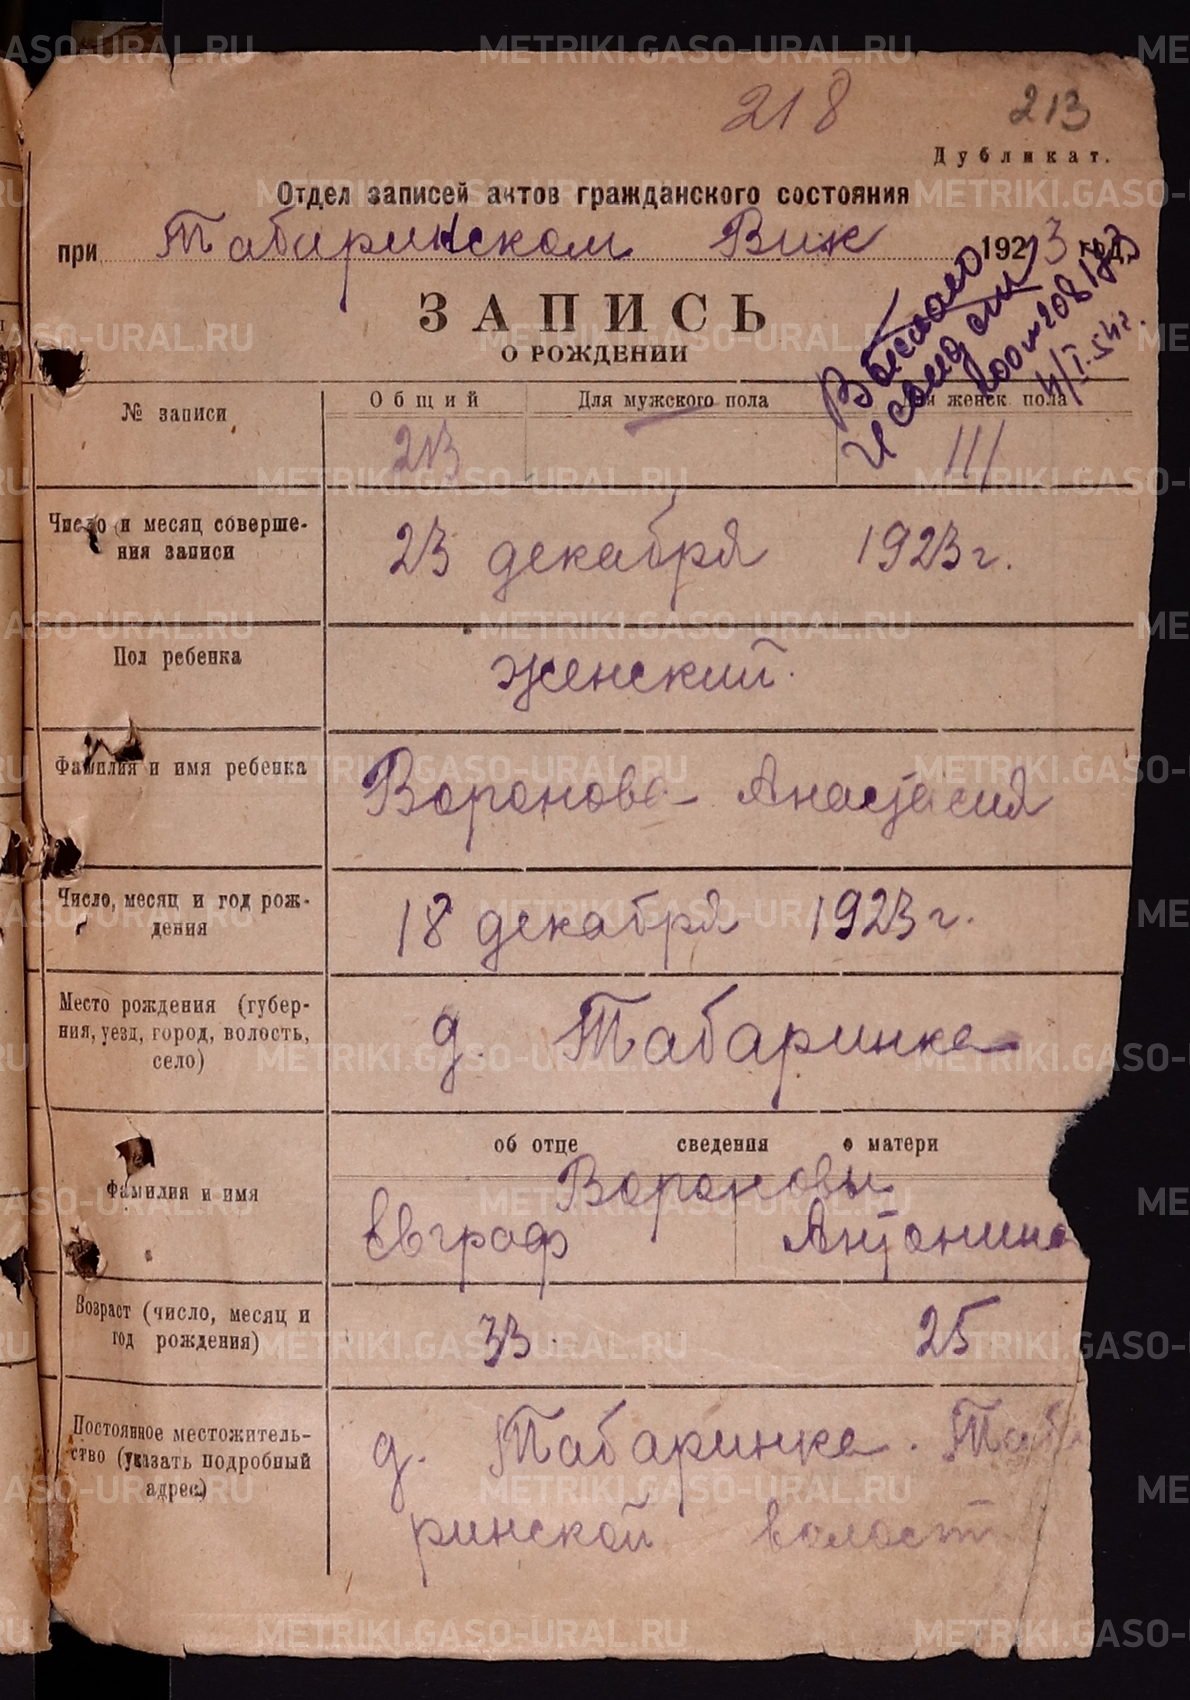 218
213
Дубликат.
Отдел записей актов гражданского состояния
при Табаринском Вик 1923 год
ЗАПИСЬ
О РОЖДЕНИИ
№ записи
Общий
Для мужского пола
Для женск. пола
213
111
Число и месяц соверше-
ния записи
23 декабря 1923 г.
Пол ребенка
женский.
Фамилия и имя ребенка
Воронова Анастасия
Число, месяц и год рож-
дения
18 декабря 1923 г.
Место рождения (губер-
ния, уезд, город, волость,
село)
д. Табаринке
об отце сведения о матери
Фамилия и имя
Вороновы
Евграф Антонина
Возраст (число, месяц и
год рождения)
33. 25
Постоянное местожитель-
ство (указать подробный
адрес)
д. Табаринке. Таба
ринской волост
METRIKI.GASO-URAL.RU